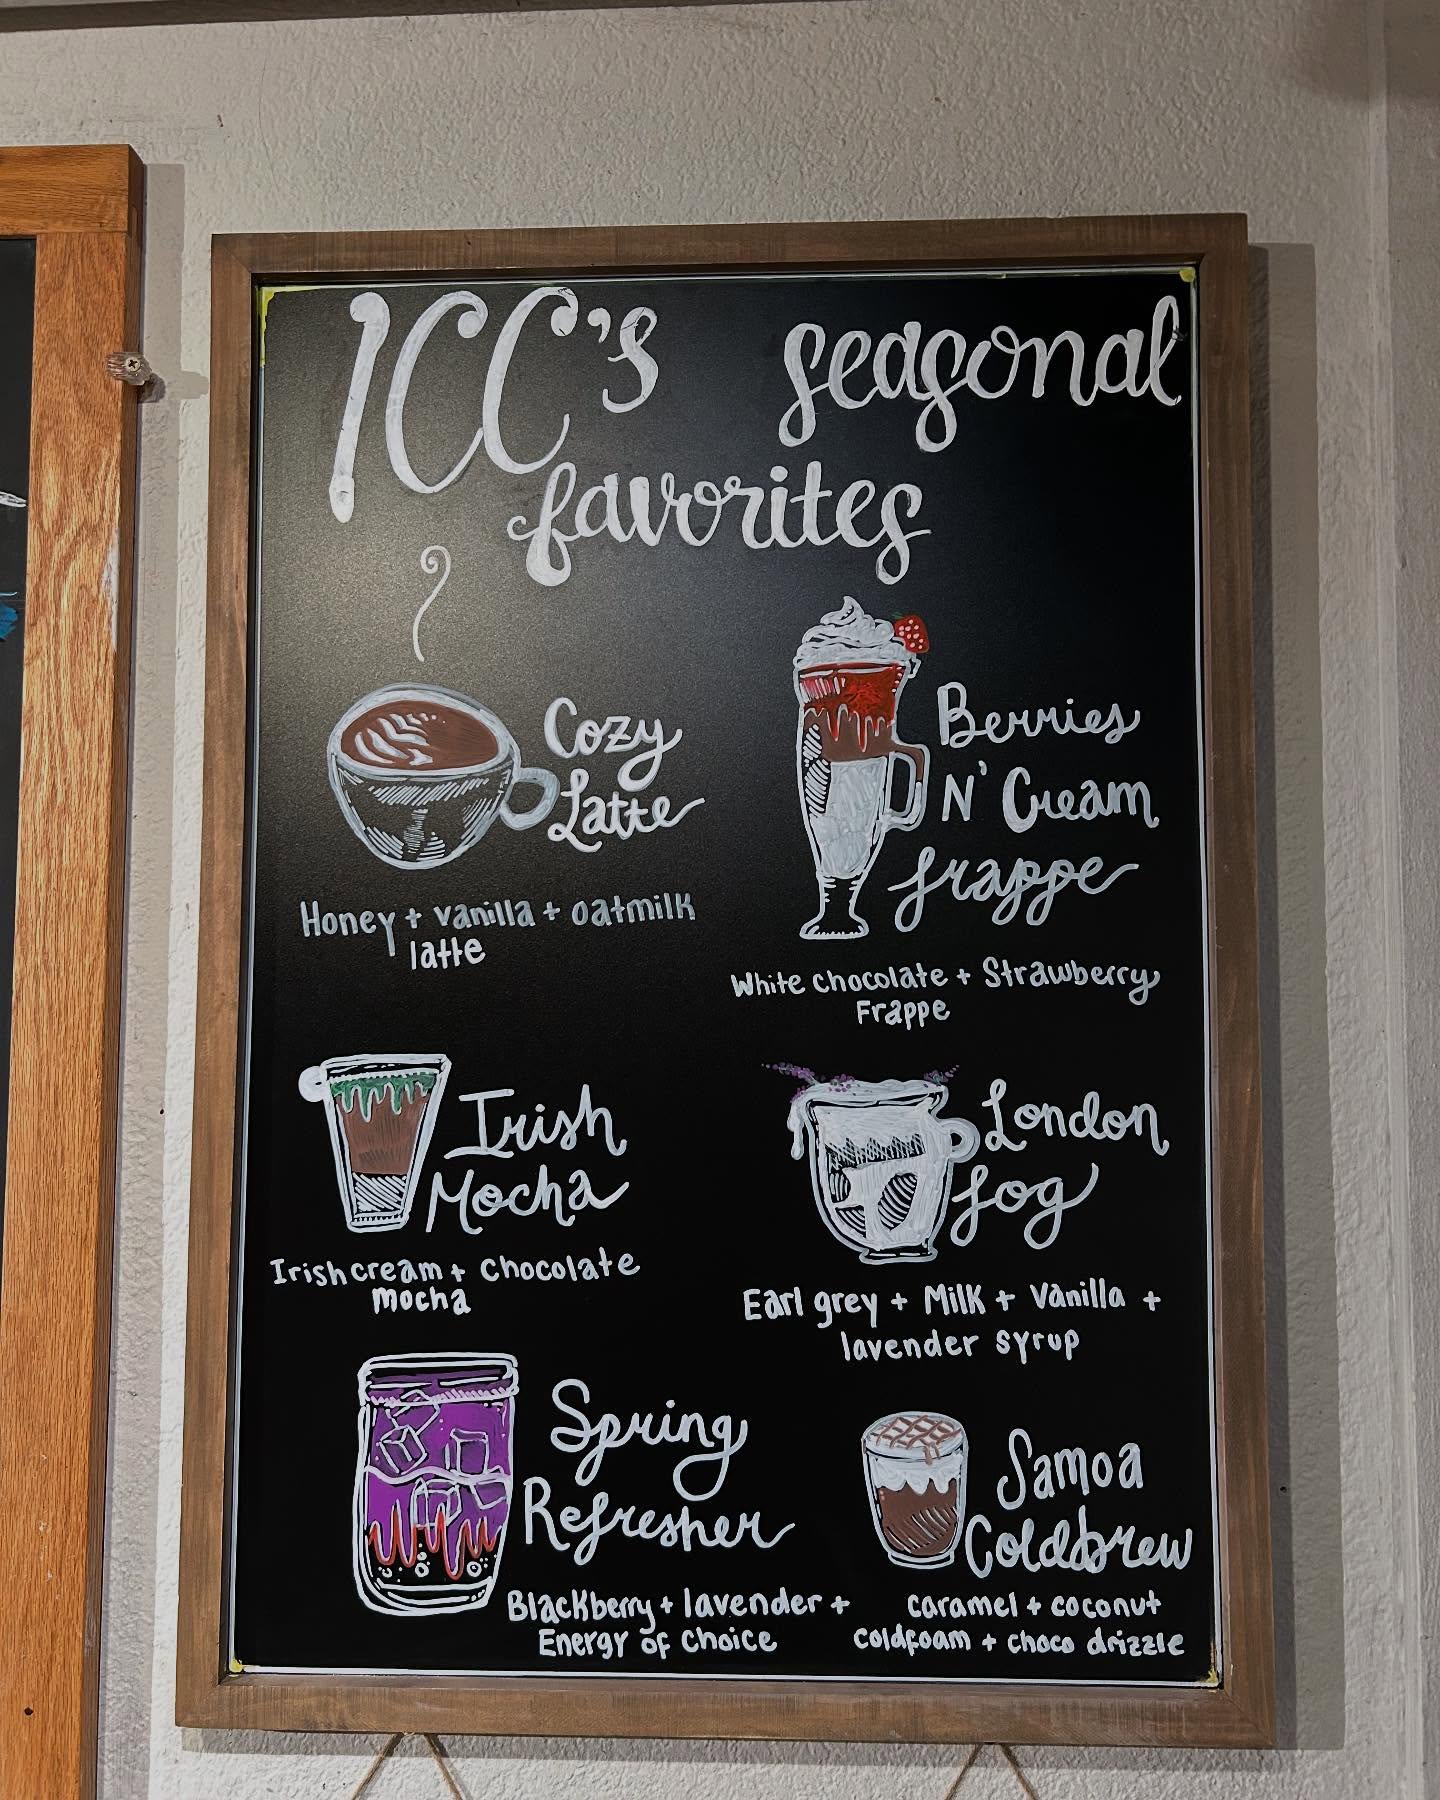 ICC's seasonal
favorites
Cozy
Latte
Honey + vanilla + oatmilk
latte
Berries
N' Cream
frappe
White chocolate + Strawberry
Frappe
Irish
Mocha
Irish cream + chocolate
mocha
London
fog
Earl grey + Milk + vanilla +
lavender syrup
Spring
Refresher
Blackberry + lavender +
Energy of choice
Samoa
Coldbrew
caramel + coconut
coldfoam + choco drizzle